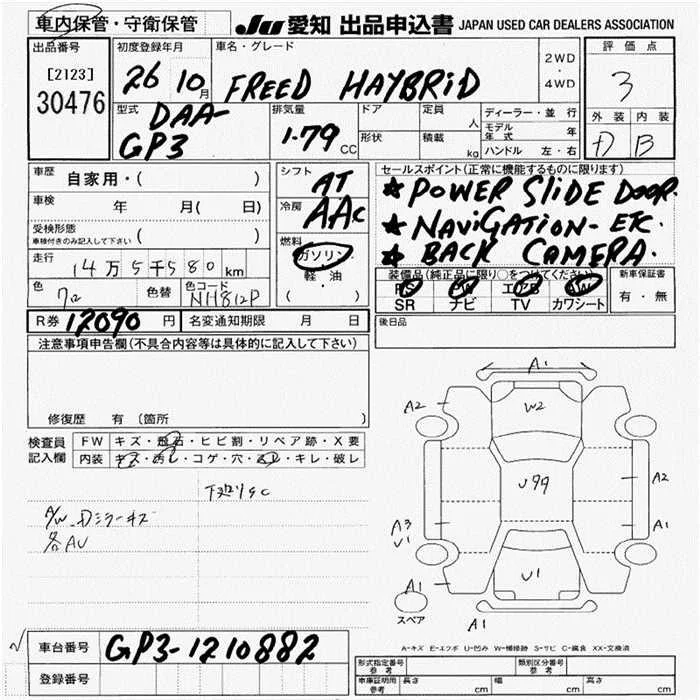 車内保管・守衛保管
JU 愛知 出品申込書 JAPAN USED CAR DEALERS ASSOCIATION
出品番号
[2123]
30476
初度登録年月
26 10月
車名・グレード
FREED HAYBRiD
2WD
・
4WD
評価点
3
外装 内装
D B
型式
DAA-
GP3
排気量
1.79 CC
ドア
形状
定員 人
積載 kg
ディーラー・並行
モデル年式 年
ハンドル 左・右
車歴 自家用・( )
車検 年 月( 日)
受検形態
車検付きのみ記入して下さい ( )
走行 14万5千580km
色 色替 色コード
NH812P
シフト AT
冷房 AAC
燃料
ガソリン
軽油
( )
セールスポイント(正常に機能するものに限ります)
★ POWER SLIDE DOOR.
★ NAViGATiON - ETC.
★ BACK CAMERA.
装備品(純正品に限り○をつけてください)
PS PW エアB AW
SR ナビ TV カワシート
新車保証書
有・無
R券 12090 円
名変通知期限 月 日
後日品
注意事項申告欄(不具合内容等は具体的に記入して下さい)
修復歴 有 (箇所 )
検査員
記入欄
FW キズ・飛石・ヒビ割・リペア跡・X要
内装 キズ・汚レ・コゲ・穴・ キレ・破レ
A/W、Dミラーキズ
各AU
A1
A2
W2
U99
A2
A3
U1
A1
U1
A1
A1
スペア
A-キズ E-エクボ U-凹み W-補修跡 S-サビ C-腐食 XX-交換済
車台番号 GP3-1210882
登録番号
形式指定番号
参考
類別区分番号
参考
車庫証明用
参考
長さ cm 幅 cm 高さ cm